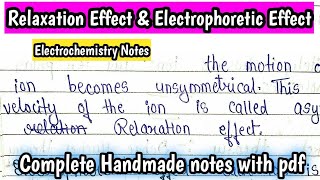 Relaxation Effect & Electrophoretic Effect
Electrochemistry Notes
the motion o
ion becomes unsymmetrical. This
velocity of the ion is called asy
Relaxation effect.
Complete Handmade notes with pdf